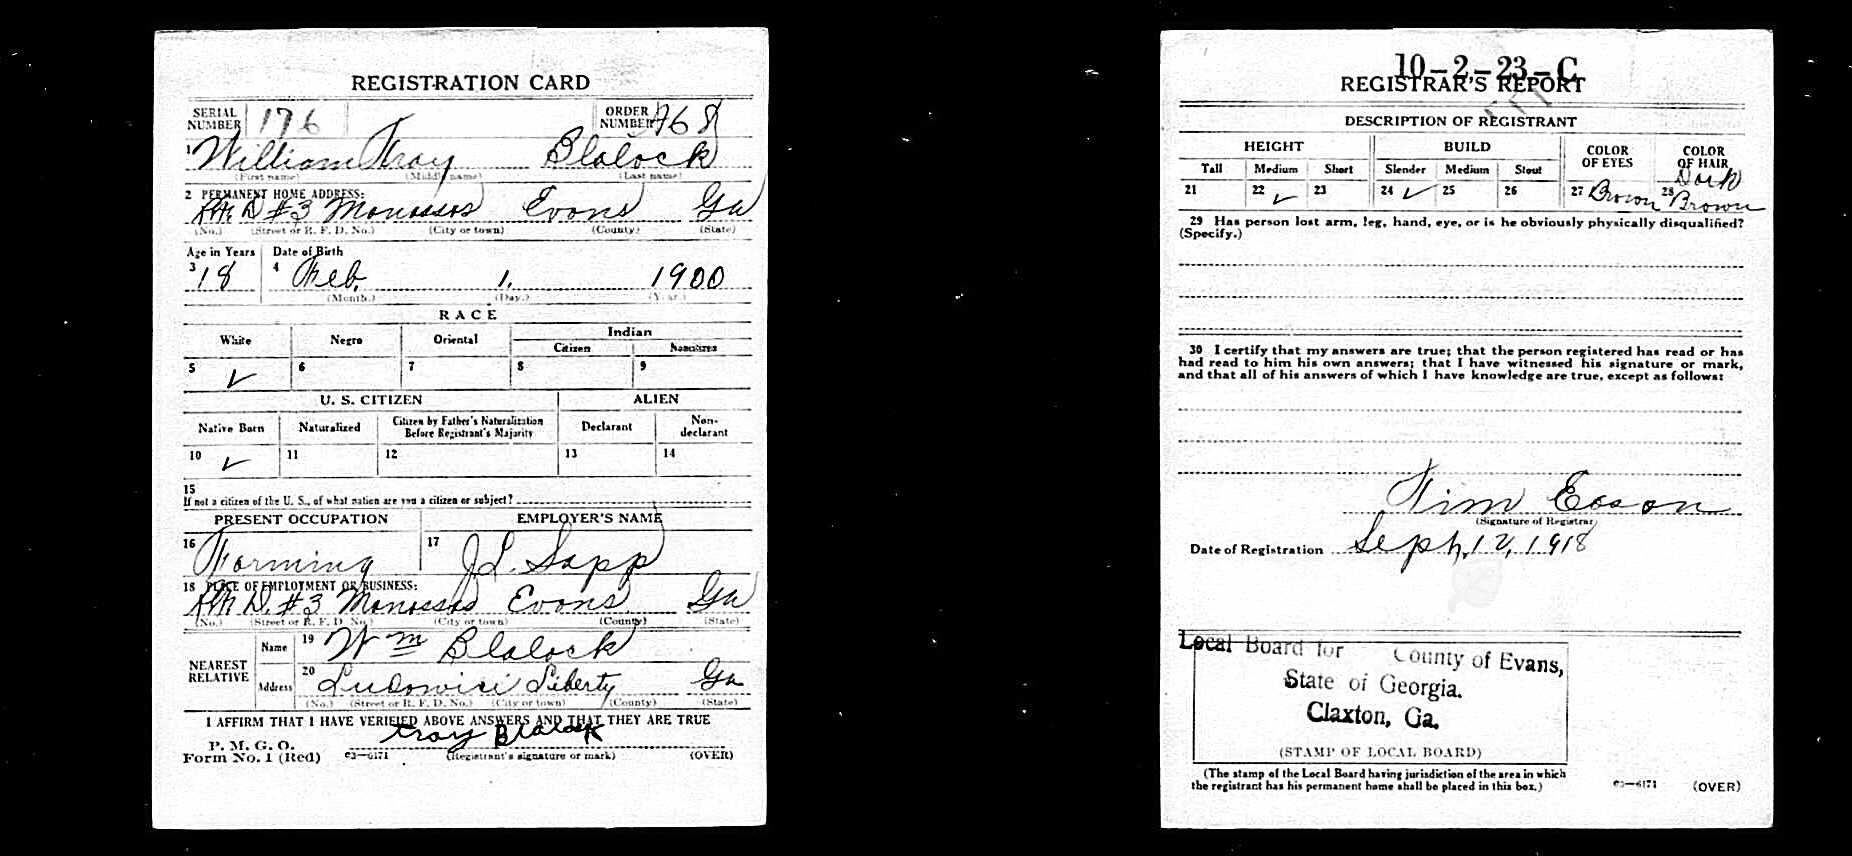 REGISTRATION CARD
SERIAL NUMBER 176
ORDER NUMBER 768
1 William Troy Blalock
(First name) (Middle name) (Last name)
2 PERMANENT HOME ADDRESS:
R.F.D. #3 Manassas Evans Ga
(No.) (Street or R. F. D. No.) (City or town) (County) (State)
Age in Years Date of Birth
3 18 4 Feb. 1. 1900
(Month.) (Day.) (Year.)
RACE
White Negro Oriental Indian
Citizen Noncitizen
5 ✓ 6 7 8 9
U. S. CITIZEN ALIEN
Native Born Naturalized Citizen by Father's Naturalization Before Registrant's Majority Declarant Non-declarant
10 ✓ 11 12 13 14
15
If not a citizen of the U. S., of what nation are you a citizen or subject?
PRESENT OCCUPATION EMPLOYER'S NAME
16 Farming 17 J.L. Sapp
18 PLACE OF EMPLOYMENT OR BUSINESS:
R.F.D. #3 Manassas Evans Ga
(No.) (Street or R. F. D. No.) (City or town) (County) (State)
NEAREST RELATIVE
Name 19 Wm Blalock
Address 20 Ludowici Liberty Ga
(No.) (Street or R. F. D. No.) (City or town) (County) (State)
I AFFIRM THAT I HAVE VERIFIED ABOVE ANSWERS AND THAT THEY ARE TRUE
P. M. G. O.
Form No. 1 (Red) 03—6171 troy Blalock
(Registrant's signature or mark) (OVER)
10-2-23-C
REGISTRAR'S REPORT
DESCRIPTION OF REGISTRANT
HEIGHT BUILD COLOR OF EYES COLOR OF HAIR
Tall Medium Short Slender Medium Stout
21 22 ✓ 23 24 ✓ 25 26 27 Brown 28 Dark Brown
29 Has person lost arm, leg, hand, eye, or is he obviously physically disqualified?
(Specify.)
30 I certify that my answers are true; that the person registered has read or has
had read to him his own answers; that I have witnessed his signature or mark,
and that all of his answers of which I have knowledge are true, except as follows:
Tim Eason
(Signature of Registrar)
Date of Registration Sept, 12, 1918
Local Board for County of Evans,
State of Georgia.
Claxton, Ga.
(STAMP OF LOCAL BOARD)
(The stamp of the Local Board having jurisdiction of the area in which
the registrant has his permanent home shall be placed in this box.)
03—6171 (OVER)